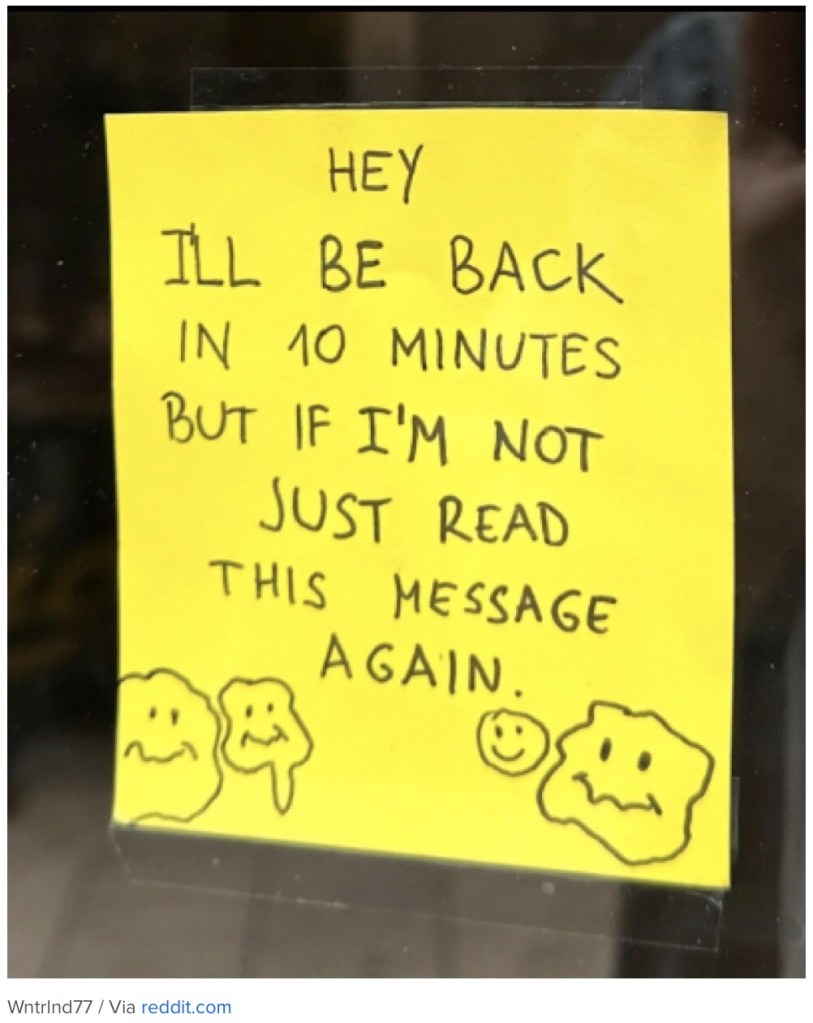 HEY
I'LL BE BACK
IN 10 MINUTES
BUT IF I'M NOT
JUST READ
THIS MESSAGE
AGAIN.
Wntrlnd77 / Via reddit.com